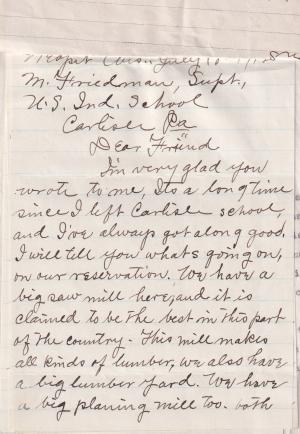 Neopit Wis., July 10
M. Friedman, Supt.,
U.S. Ind. School
Carlisle Pa
Dear Friend
I'm very glad you
wrote to me, Its a long time
since I left Carlisle school,
and I've always got along good.
I will tell you whats going on,
on our reservation. We have a
big saw mill here, and it is
claimed to be the best in this part
of the country. This mill makes
all kinds of lumber, we also have
a big lumber yard. We have
a big planing mill too. both